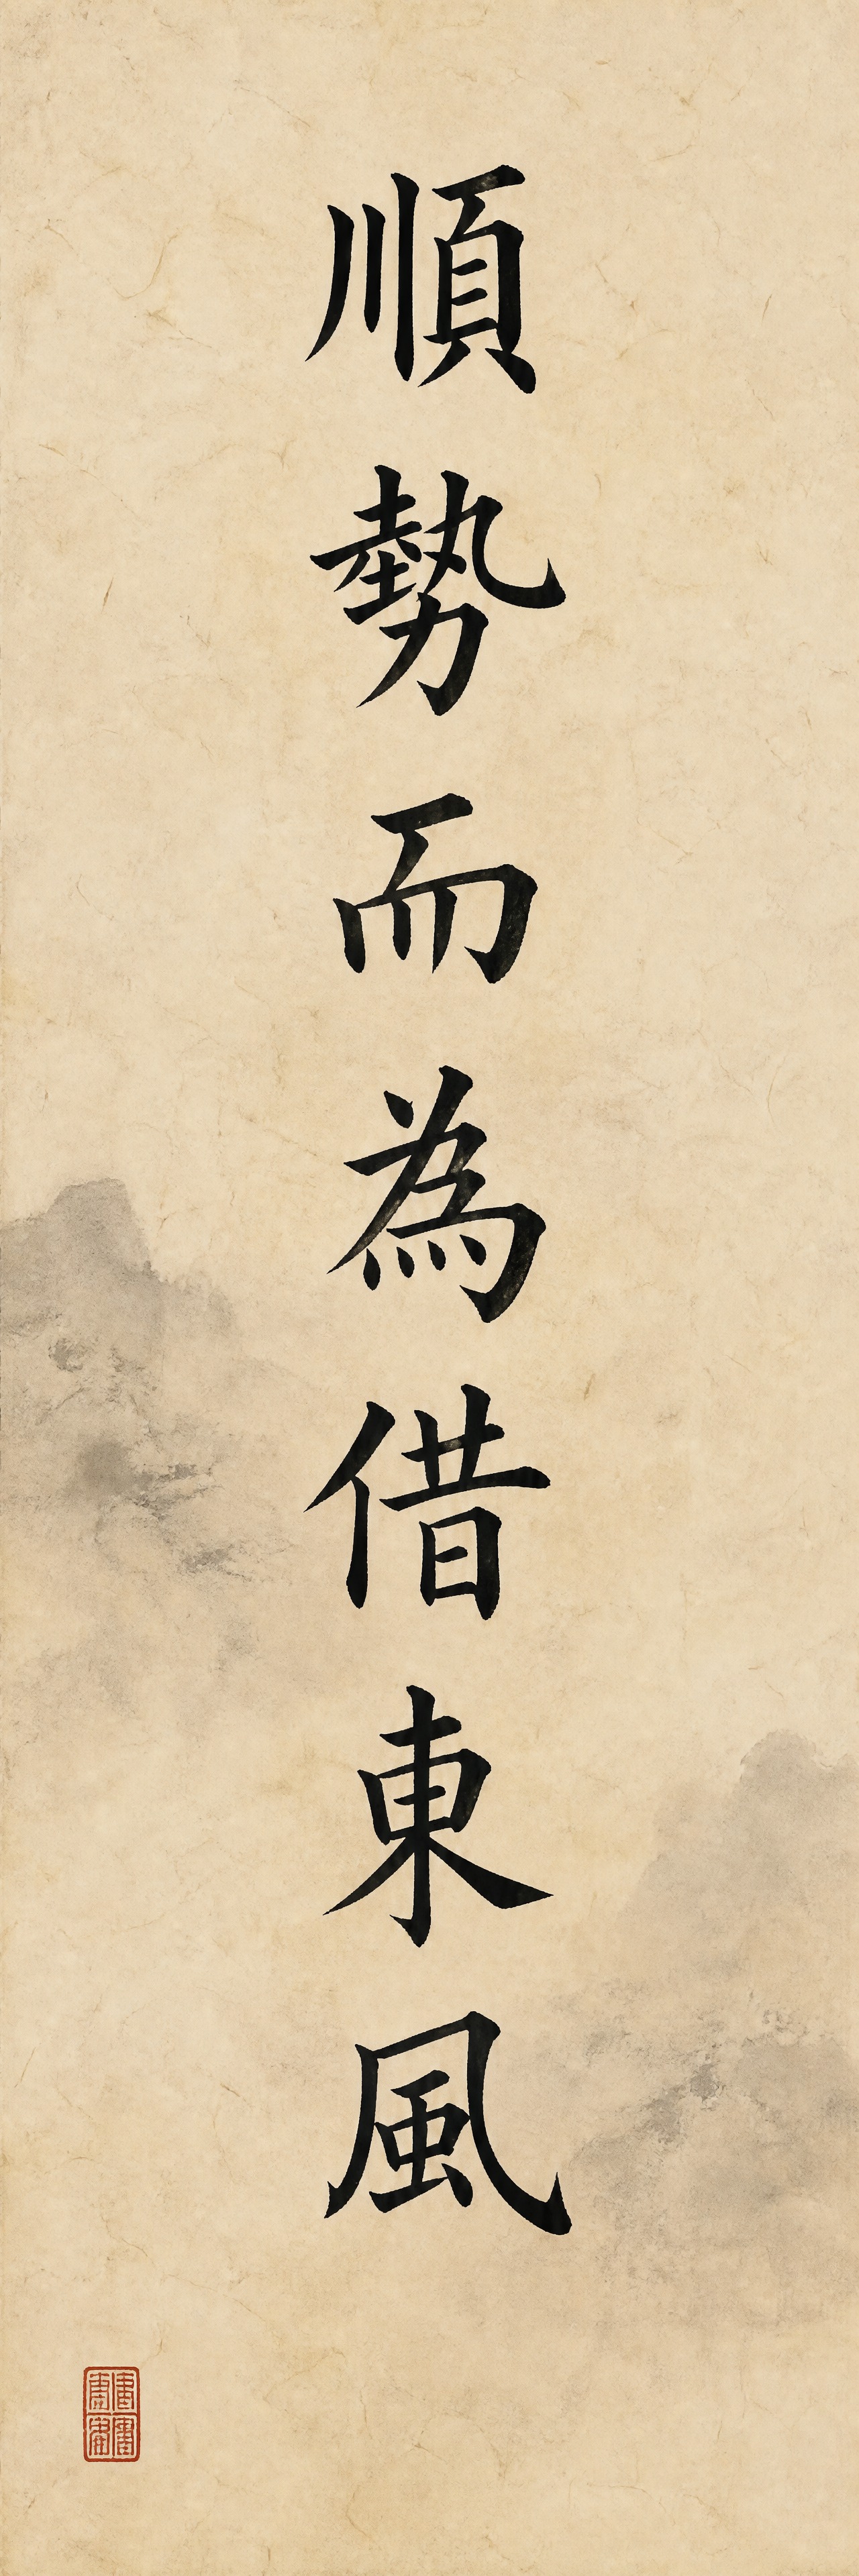 順勢而為借東風